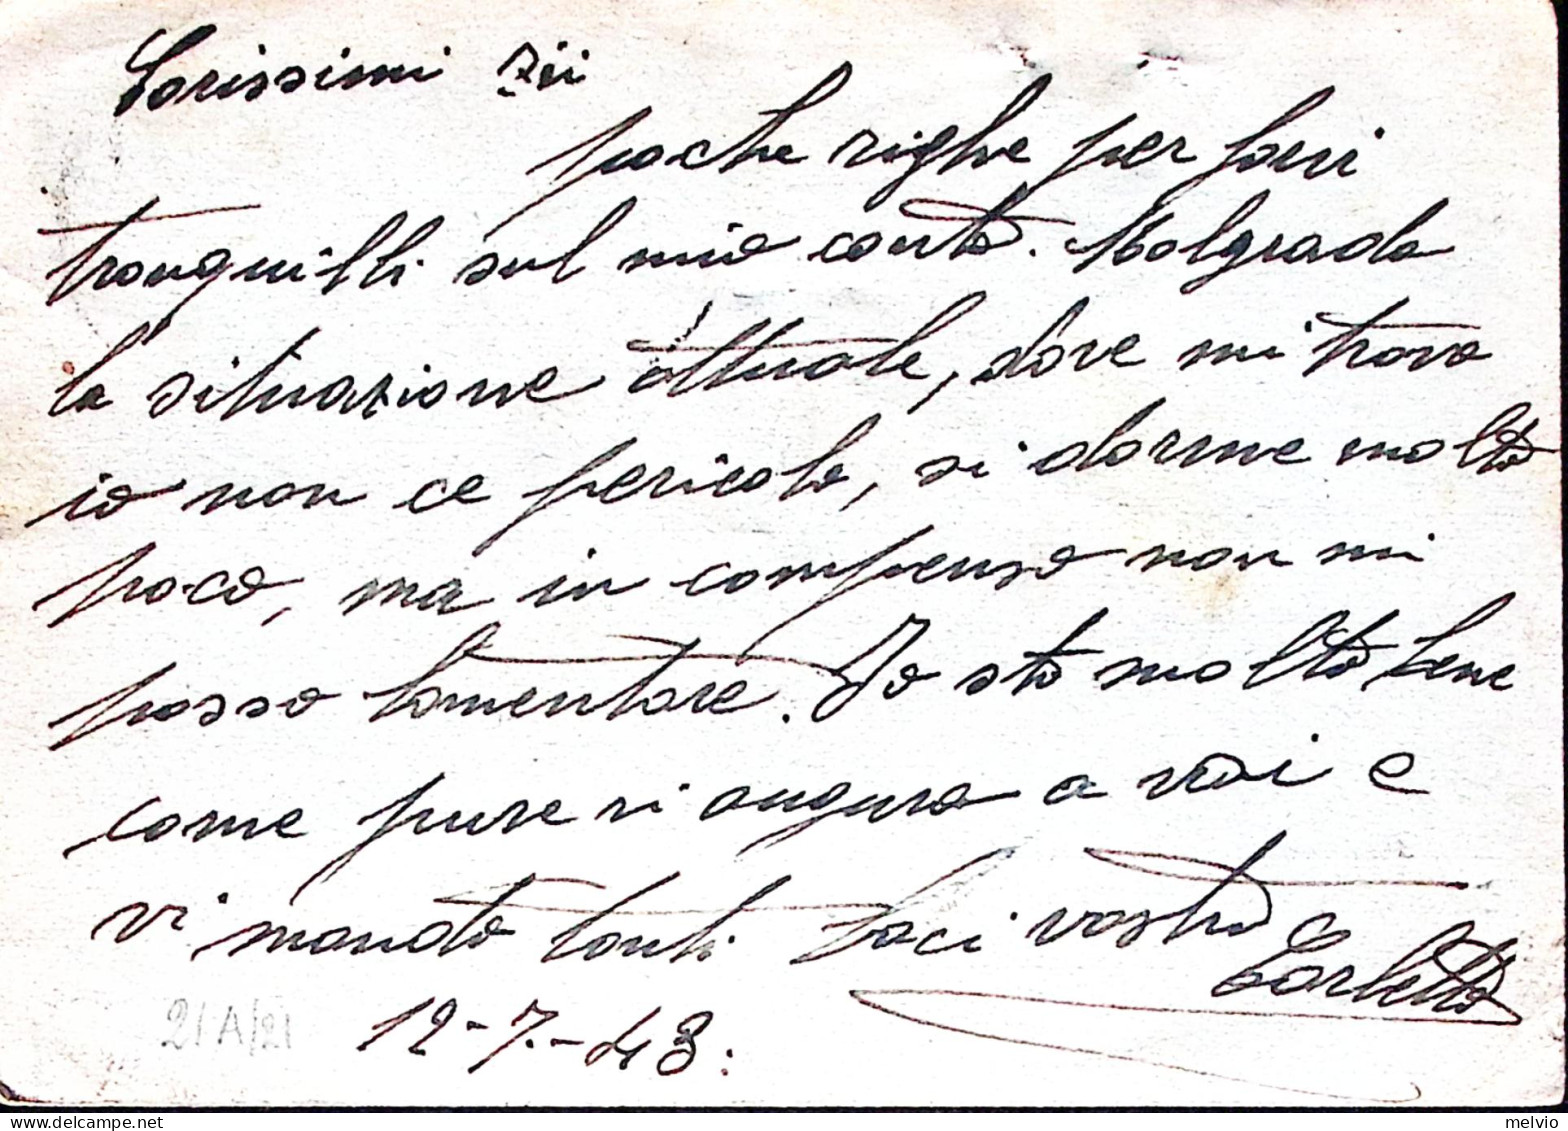 Carissimi zii
poche righe per farvi
tranquilli sul mio conto. Malgrado
la situazione attuale, dove mi trovo
io non ce pericolo, si dorme molto
poco, ma in compenso non mi
posso lamentare. Io sto molto bene
come pure vi auguro a voi e
vi mando tanti baci vostro
Carletto
12-7.-43:
21A/21
melvio